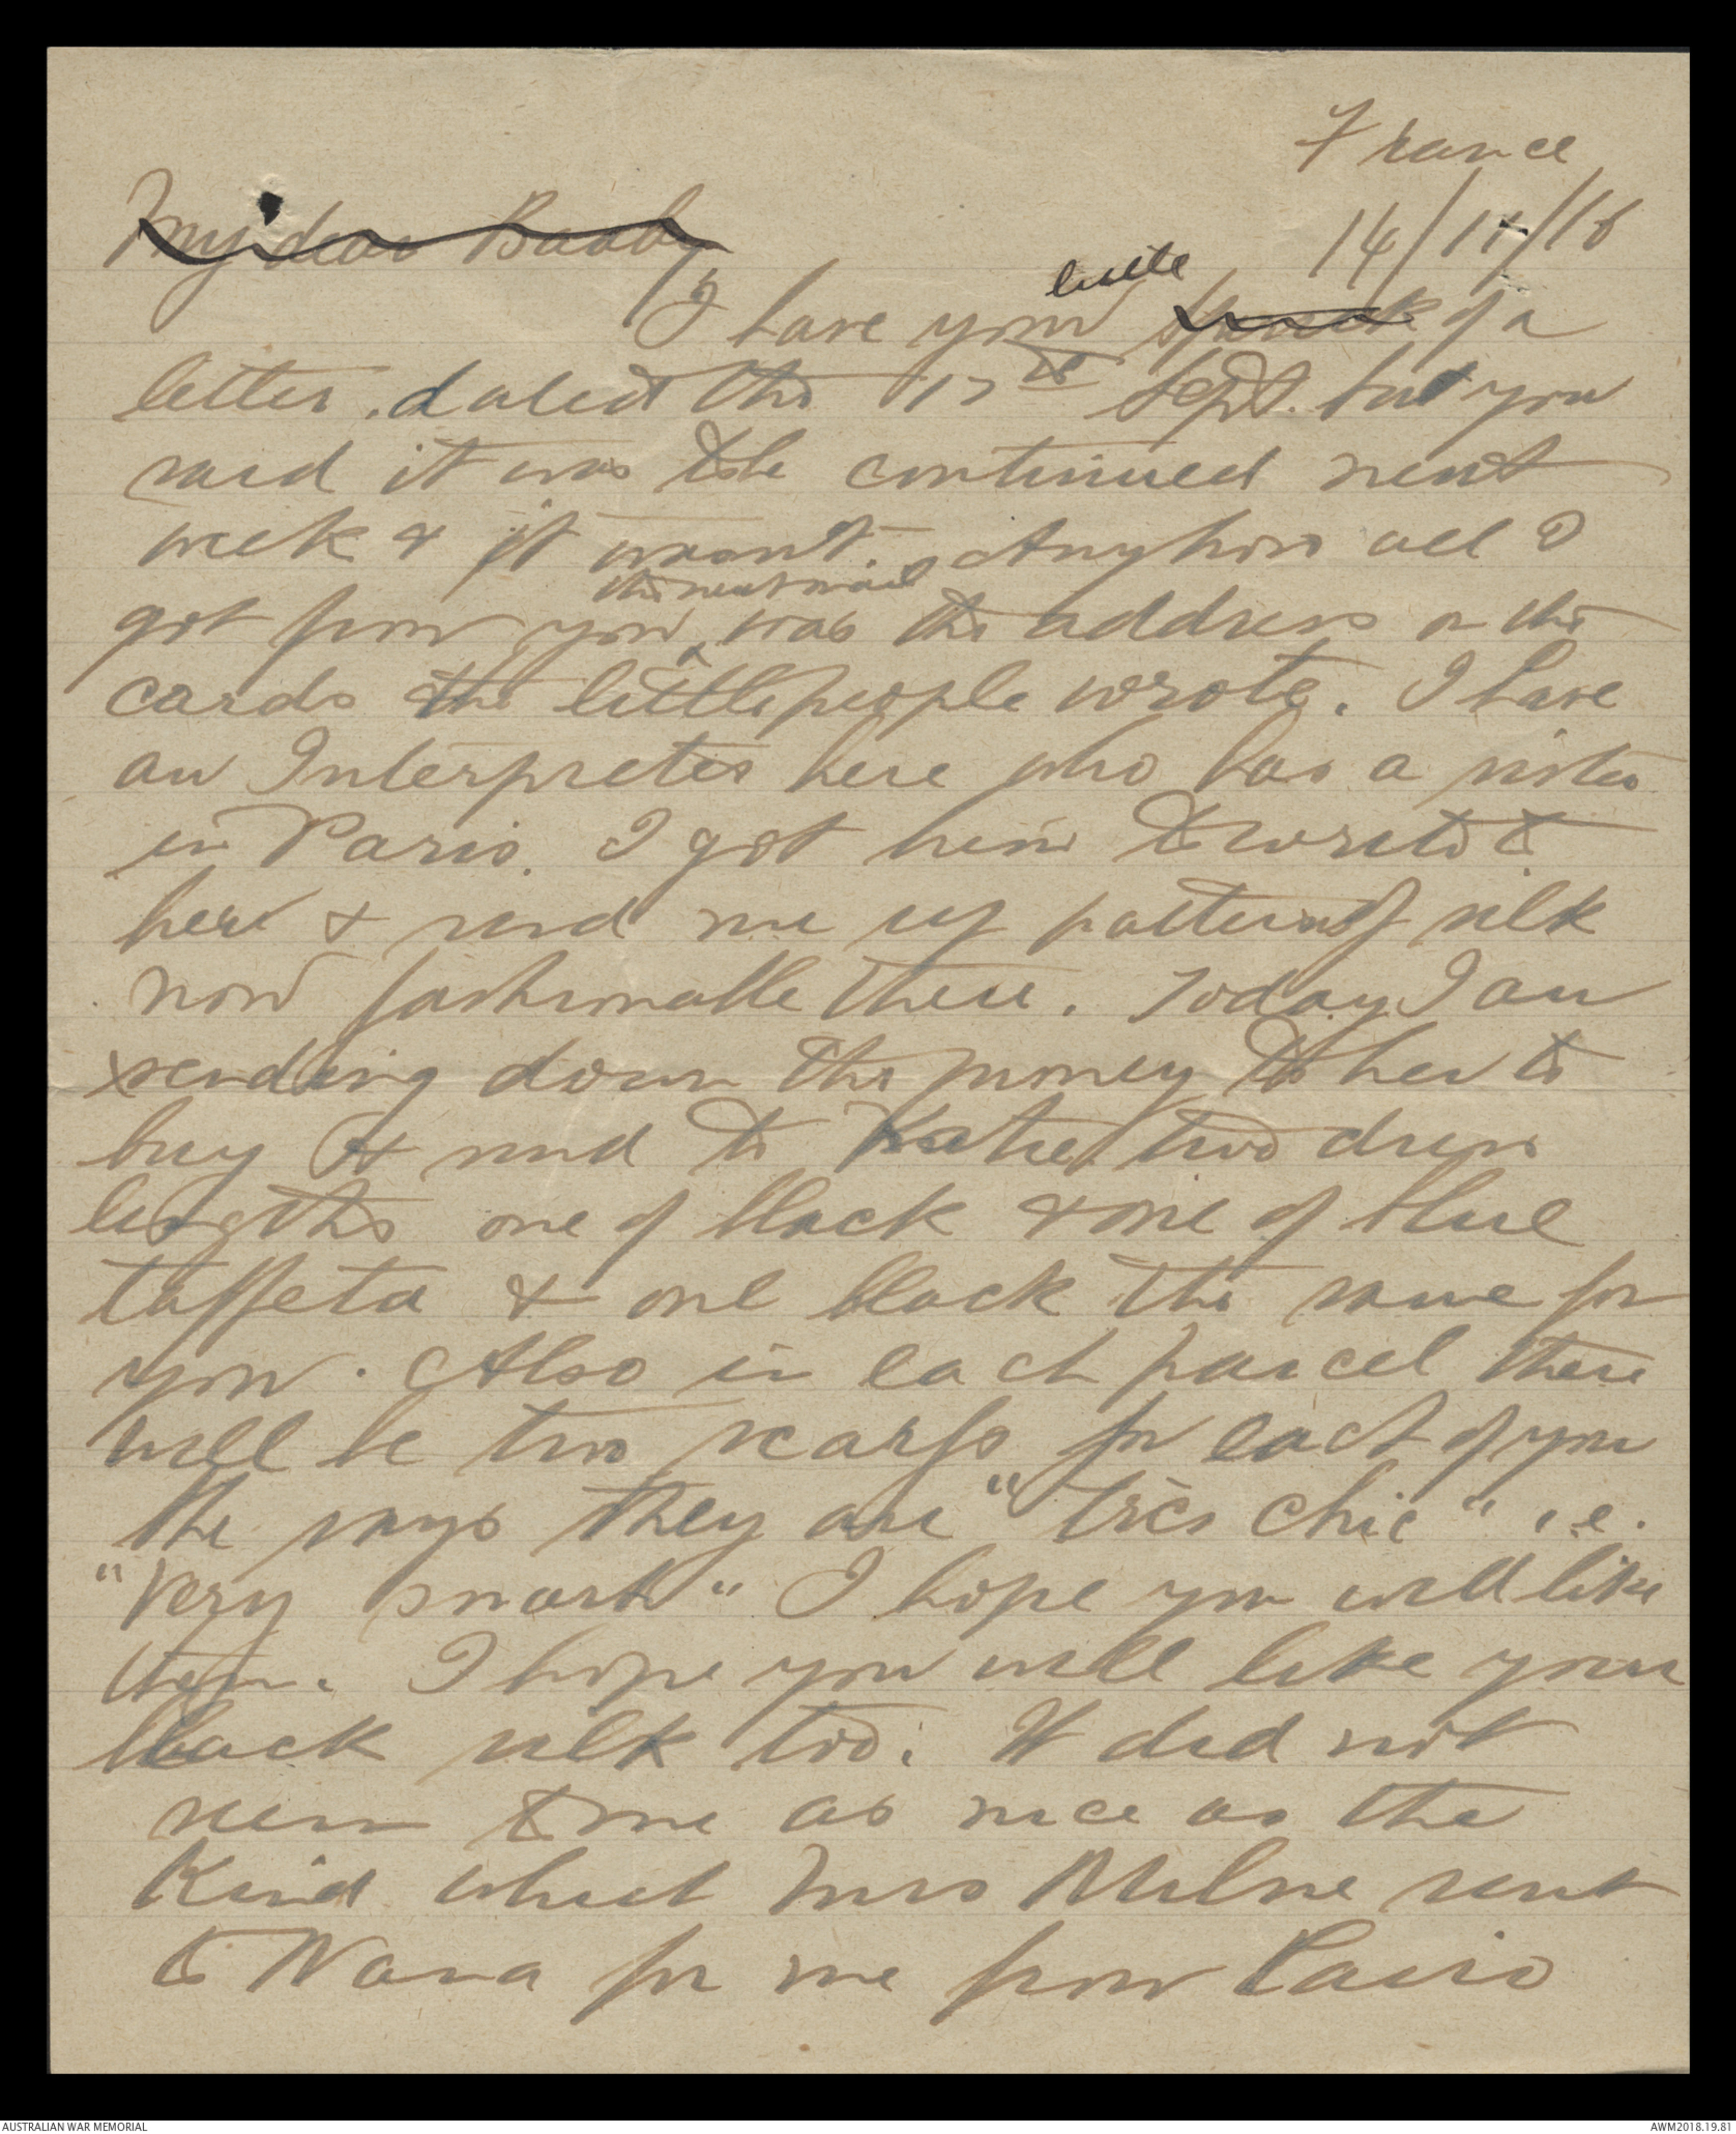 France
14/11/16
My dear Baaby
little
I have your of a
letter, dated the 17th Sept. but you
said it was to be continued next
week & it wasn't. Anyhow all I
the next mail
got from you was the address on the
cards the little people wrote. I have
an Interpreter here who has a sister
in Paris. I got him to write to
her & send me up patterns of silk
now fashionable there. Today I am
sending down the money to her to
buy & send to Katie two dress
lengths one of black & one of blue
taffeta & one black the same for
you. Also in each parcel there
will be two scarfs for each of you
She says they are "très chic" i.e.
"Very smart" I hope you will like
them. I hope you will like your
black silk too. It did not
seem to me as nice as the
Kind which Mrs Milne sent
to Nana for me from Cairo
AUSTRALIAN WAR MEMORIAL
AWM2018.19.81